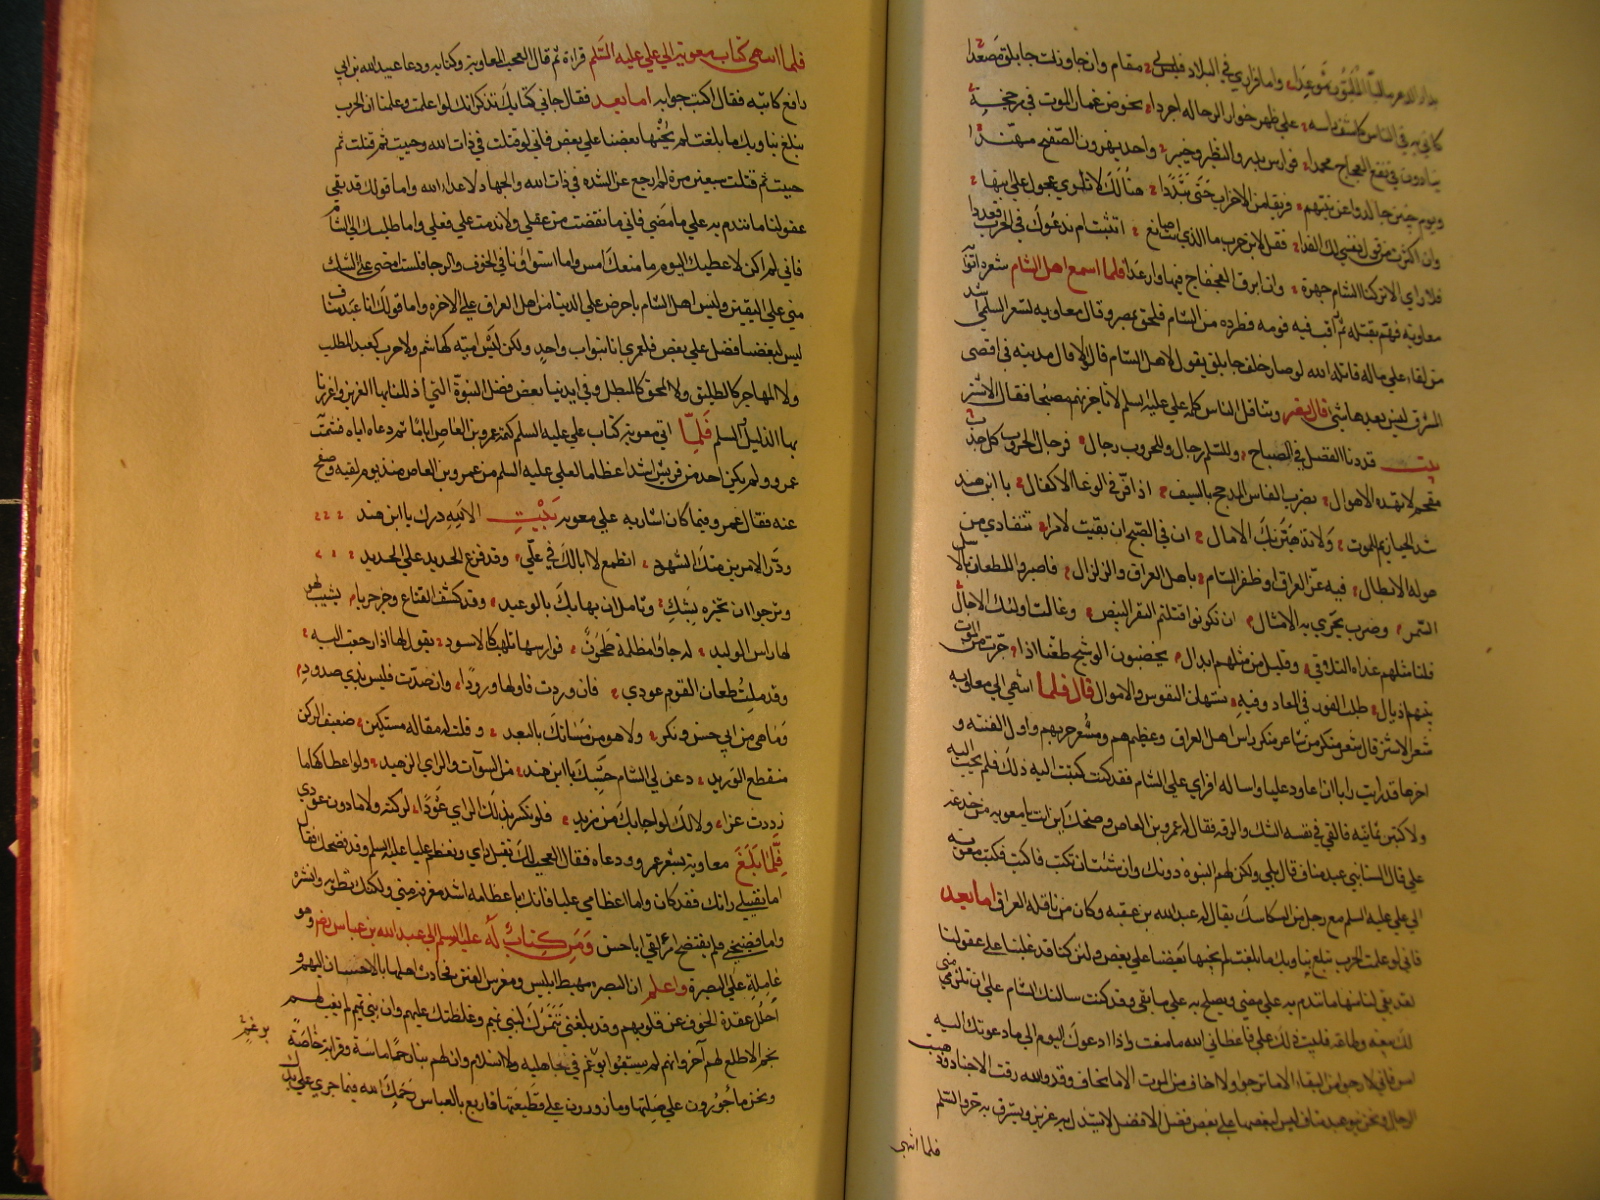 كاني به في الناس كاشف راسه علي ظهر خوار الرحاله اجردا يخوض غمار الموت في مرجحنة
ينادون في نقع العجاج محمدا فوارس بدر والنظير وخيبر واحد يهرون الصفيح مهندا
ويوم حنين جالدوا عن نبيهم فريقا من الاحزاب حتي تبددا هنالك لا تلوي عجوز علي ابنها
وان اكثرت من قول نفسي لك الفدا فقل لابن حرب ما الذي انت صانع اتثبت ام ندعوك في الحرب قعددا
فلا راي الا تركنا الشام جهرة وان ابرق الفجفاج فيها وارعدا فلما اسمع اهل الشام شعره اتوا
معاويه فهم بقتله ثم راقب فيه قومه فطرده من الشام فلحق بمصر وقال معاويه لشعر السلمي اشد
من لقاء علي ما له قاتله الله لو صار خلف جابلق يقول لاهل الشام قال الا قال مدينه في اقصي
المشرق ليس بعدها شي قال نصر وتناقل الناس كلمة علي عليه السلم لاناجزنهم مصبحا فقال الاشتر
قد دنا الفصل في الصباح وللسلم رجال وللحروب رجال فرجال الحروب كل خدب
مقحم لا تهده الاهوال يضرب الفارس المدجج بالسيف اذا فر في الوغا الاكفال يا ابن هند
شد الحيازيم للموت ولا تذهبنك الامال ان في الصبح ان بقيت لامرا تتفادي من
هوله الابطال فيه عز العراق او ظفر الشام باهل العراق والزلزال فاصبروا للطعان بالاسل
السمر وضرب يجري به الامثال ان تكونوا قتلتم النفر البيض وغالت اولئك الاجال
فلنا مثلهم غداه التلاقي وقليل من مثلهم ابدال يخضبون الوشيج طعنا اذا جرت من الموت
بينهم اذيال طلب الفوز في المعاد وفيه تستهان النفوس والاموال قال فلما انتهي الي معاويه
شعر الاشتر قال شعر منكر من شاعر منكر راس اهل العراق وعظيمهم ومسعر حربهم واول الفتنه و
اخرها قد رايت رايا ان اعاود عليا واساله اقراري علي الشام فقد كنت كتبت اليه ذلك فلم يجب اليه
ولاكتبن ثانيه فالقي في نفسه الشك والرقه فقال له عمرو بن العاص وضحك اين انت يا معويه من خدعة
علي قال السنا بني عبد مناف قال بلي ولكن لهم النبوه دونك وان شئت ان تكتب فاكتب فكتب معويه
الي علي عليه السلم مع رجل من السكاسك يقال له عبد الله بن عقبه وكان من ناقله العراق اما بعد
فاني لو علمت الحرب تبلغ بنا وبك ما بلغت لم يجنها بعضنا علي بعض ولئن كنا قد غلبنا علي عقولنا
لقد بقي لنا منها ما نندم به علي ما مضي ويصلح به علي ما بقي وقد كنت سالتك الشام علي ان تلزمني
لك بيعه وطاعه فابيت ذلك علي فاعطاني الله ما منعت وانا ادعوك اليوم الي ما دعوتك اليه
امس فاني لا ارجو من البقاء الا ما ترجو ولا اخاف من الموت الا ما تخاف وقد والله رقت الاجناد وذهبت
الرجال ونحن بنو عبد مناف ليس لبعضها علي بعض فضل الا فضل لا يستذل به عزيز ويسترق به حر والسلم
فلما انتهي
فلما انتهي كتاب معويه الي علي عليه السلم قراه ثم قال العجب لمعاوية وكتابه ودعا عبيد الله بن ابي
رافع كاتبه فقال اكتب جوابه اما بعد فقال جاني كتابك تذكر انك لو علمت وعلمنا ان الحرب
تبلغ بنا وبك ما بلغت لم يجنها بعضنا علي بعض فاني لو قتلت في ذات الله وحييت ثم قتلت ثم
حييت ثم قتلت سبعين مرة لم ارجع عن الشده في ذات الله والجهاد لاعداء الله واما قولك قد بقي
عقولنا ما نندم به علي ما مضي فاني ما نقضت من عقلي ولا ندمت علي فعلي واما طلبك الي الشام
فاني لم اكن لاعطيك اليوم ما منعك امس واما استواؤنا في الخوف والرجا فلست امضي علي الشك
مني علي اليقين وليس اهل الشام باحرص علي الدنيا من اهل العراق علي الاخره واما قولك انا عبد مناف
ليس لبعضنا فضل علي بعض فلعمري انا بنو اب واحد ولكن ليس اميه كهاشم ولا حرب كعبد المطلب
ولا المهاجر كالطليق ولا المحق كالمبطل وفي ايدينا بعض فضل النبوة التي اذللنا بها العزيز واعززنا
بها الذليل والسلم فلما اتي معوية كتاب علي عليه السلم كتمه عمرو بن العاص اياما ثم دعاه اياه فشمت
عمرو ولم يكن احد من قريش اشد اعظاما لعلي عليه السلم من عمرو بن العاص منذ يوم لقيه وصفح
عنه فقال عمرو فيما كان اشار به علي معويه بكيت الا لله درك يا ابن هند
ودر الامرين منك الشهود اتطمع لا ابالك في علي وقد قرع الحديد علي الحديد
وترجوا ان تحيره بشك وتامل ان يهابك بالوعيد وقد كشف القناع وجر حربا يشيب لهولها
لها راس الوليد له جاوا مظلمة طحون فوارسها تلهب كالاسود يقول لها اذا رجعت اليه
وقد ملت طعان القوم عودي فان وردت فاولها ورودا وان صدت فليس بذي صدود
وما هي من ابي حسن ونكر ولا هو من مسائك بالبعيد وقلت له مقاله مستكين ضعيف الركن
منقطع الوريد دعن لي الشام حسبك يا ابن هند من السوآت والراي الزهيد ولو اعطاكها ما
زددت عزا ولا لك لو اجابك من مزيد فلو تكسر بذلك الراي عودا لركته ولا ما دون عودي
فلما بلغ معاوية شعر عمرو ودعاه فقال العجب لك تفيل رايي وتعظم عليا عليه السلم وقد فضحك فقال
اما تفييلي رايك فقد كان واما اعظامي عليا فانك باعظامه اشد معرفة مني ولكنك تطويه وانشره
واما فضيحتي فلم يفتضح امرؤ لقي ابا حسن ومن كتاب له عليه السلم الي عبد الله بن عباس رضه وهو
عامله علي البصرة واعلم ان البصره مهبط ابليس ومغرس الفتن فحادث اهلها بالاحسان اليهم و
احلل عقدة الخوف عن قلوبهم وقد بلغني تنمرك لبني تميم وغلظتك عليهم وان بني تميم لم يغب لهم
نجم الا طلع لهم آخر وانهم لم يسبقوا بوغم في جاهليه ولا اسلام وان لهم بنا رحما ماسة وقرابة خاصة
ونحن ماجورون علي صلتها ومازورون علي قطيعتها فاربع بالعباس رحمك الله فيما جري علي يدك
بوغم